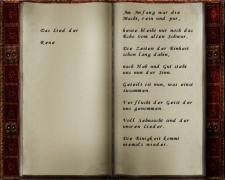 Das Lied der
Rene
Am Anfang war die
Macht, rein und pur,
heute bleibt nur noch das
Echo vom alten Schwur.
Die Zeiten der Einheit
schon lang dahin,
nach Hab und Gut steht
uns nun der Sinn.
Geteilt ist nun, was einst
zusammen.
Verflucht der Geist der
uns genommen.
Voll Sehnsucht sind der
unsren Lieder.
Die Einigkeit kommt
niemals wieder.